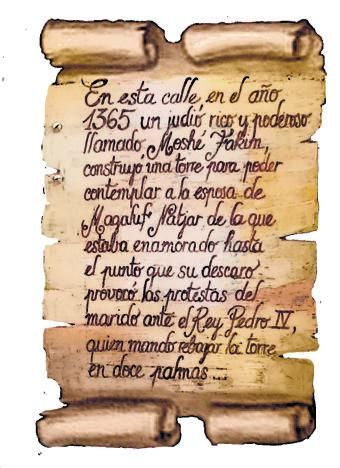 En esta calle, en el año
1365 un judió rico y poderoso
llamado, Moshé Fakim,
construyo una torre para poder
contemplar a la esposa de
Magaluf Natjar de la que
estaba enamorado hasta
el punto que su descaro
provocó las protestas del
marido ante el Rey Pedro IV,
quien mando rebajar la torre
en doce palmas...